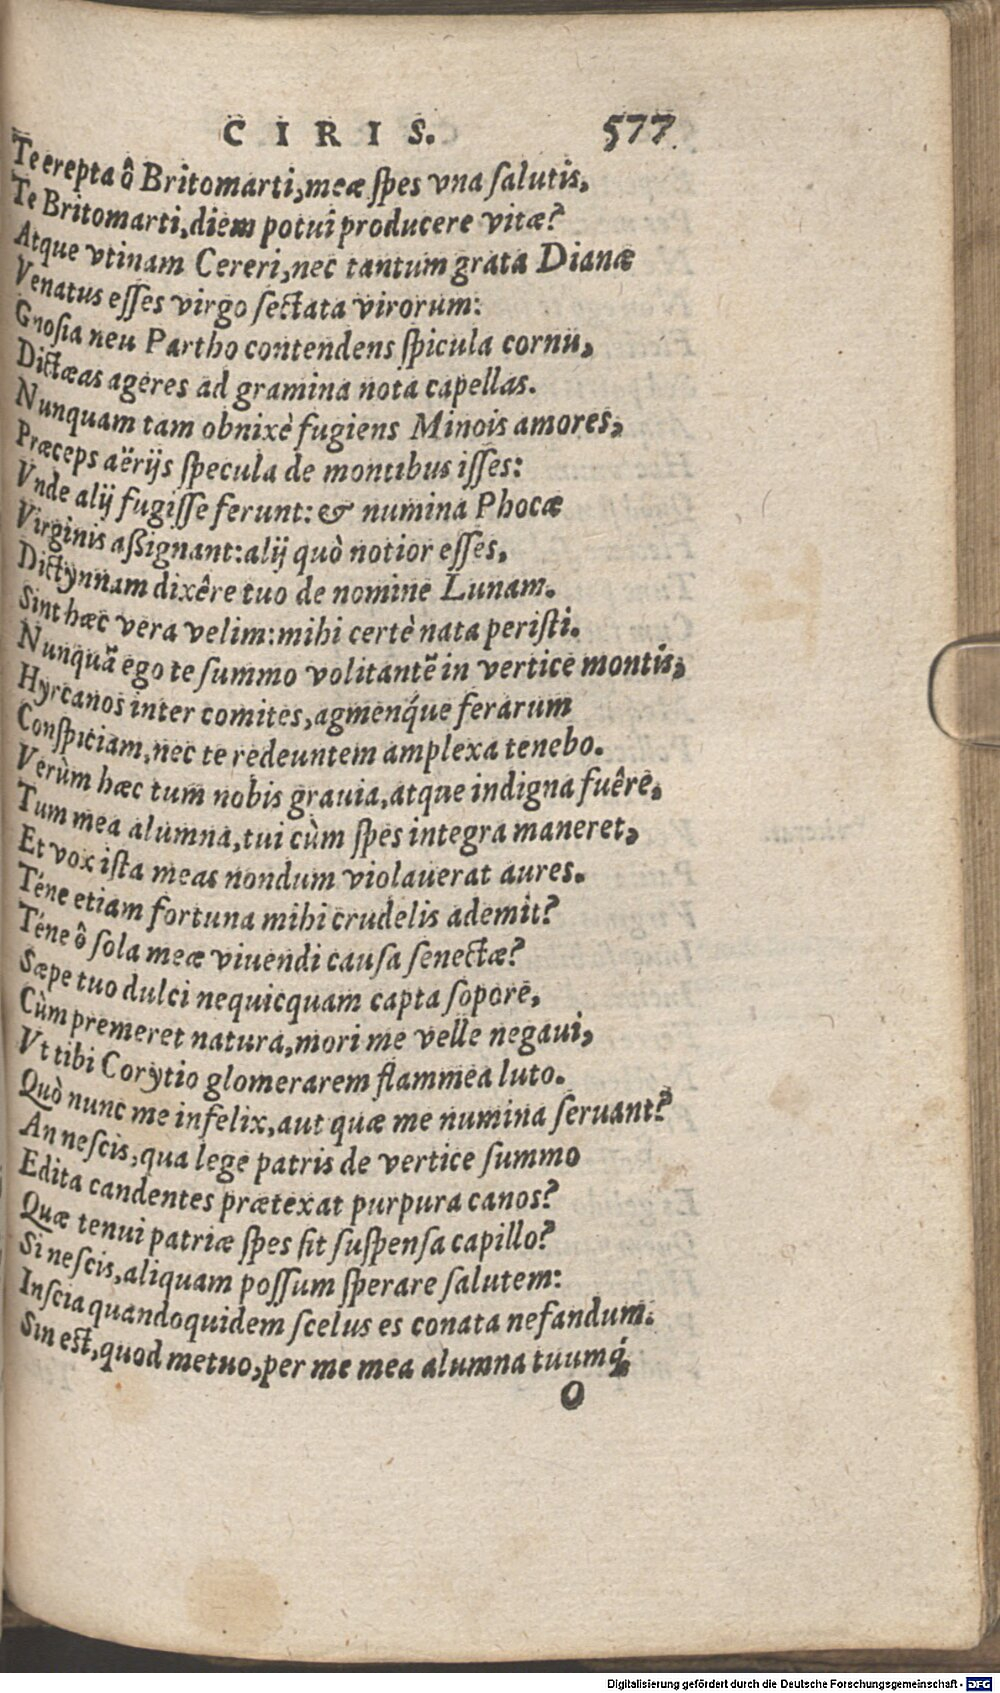 CIRIS. 577
Te erepta ô Britomarti, meæ spes vna salutis,
Te Britomarti, diem potui producere vitæ?
Atque vtinam Cereri, nec tantum grata Dianæ
Venatus esses virgo sectata virorum:
Gnosia neu Partho contendens spicula cornu,
Dictæas ageres ad gramina nota capellas.
Nunquam tam obnixè fugiens Minois amores,
Præceps aërijs specula de montibus isses:
Vnde alij fugisse ferunt: & numina Phocæ
Virginis assignant: alij quò notior esses,
Dictynnam dixêre tuo de nomine Lunam.
Sint hæc vera velim: mihi certè nata peristi.
Nunquā ego te summo volitantē in vertice montis,
Hyrcanos inter comites, agmenq́ue ferarum
Conspiciam, nec te redeuntem amplexa tenebo.
Verùm hæc tum nobis grauia, atque indigna fuêre,
Tum mea alumna, tui cùm spes integra maneret,
Et vox ista meas nondum violauerat aures.
Téne etiam fortuna mihi crudelis ademit?
Téne ô sola meæ viuendi causa senectæ?
Sæpe tuo dulci nequicquam capta sopore,
Cùm premeret natura, mori me velle negaui,
Vt tibi Corytio glomerarem flammea luto.
Quò nunc me infelix, aut quæ me numina seruant?
An nescis, qua lege patris de vertice summo
Edita candentes prætexat purpura canos?
Quæ tenui patriæ spes sit suspensa capillo?
Si nescis, aliquam possum sperare salutem:
Inscia quandoquidem scelus es conata nefandum.
Sin est, quod metuo, per me mea alumna tuumq́;
O
Digitalisierung gefördert durch die Deutsche Forschungsgemeinschaft - DFG